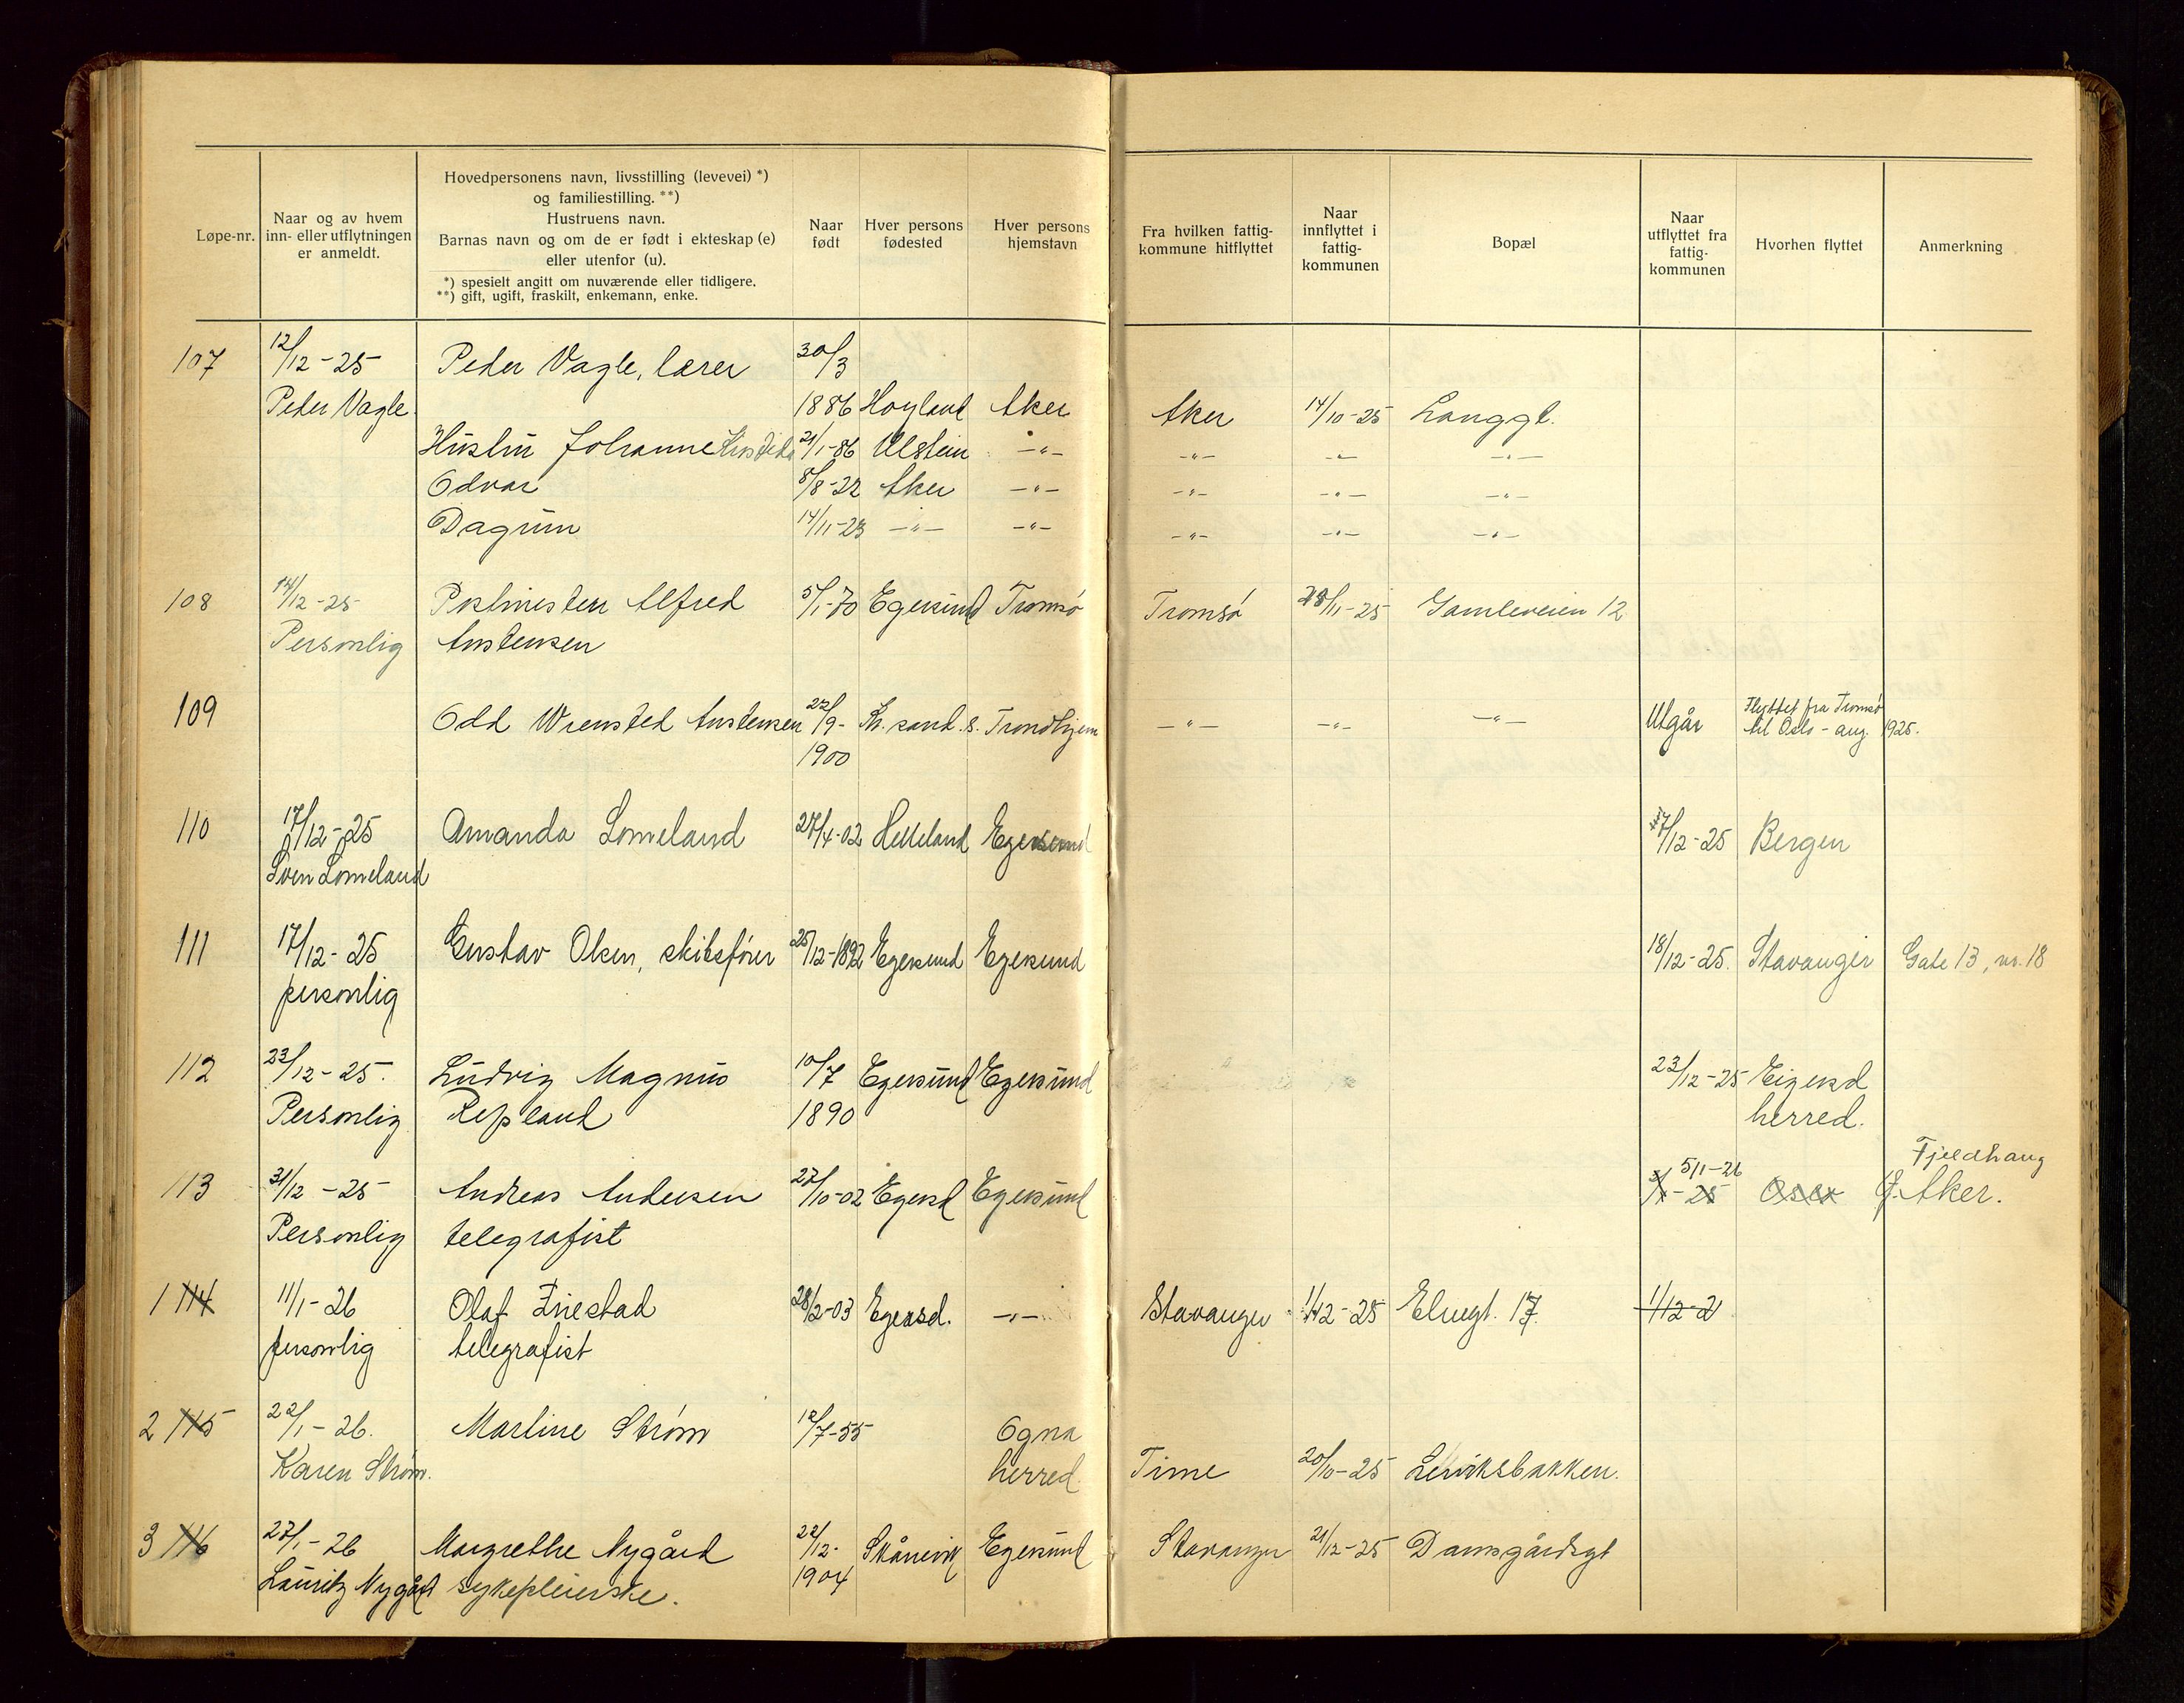 Løpe-nr.
Naar og av hvem
inn- eller utflytningen
er anmeldt.
Hovedpersonens navn, livsstilling (levevei) *)
og familiestilling. **)
Hustruens navn.
Barnas navn og om de er født i ekteskap (e)
eller utenfor (u).
*) spesielt angitt om nuværende eller tidligere.
**) gift, ugift, fraskilt, enkemann, enke.
Naar
født
Hver persons
fødested
Hver persons
hjemstavn
Fra hvilken fattig-
kommune hitflyttet
Naar
innflyttet i
fattig-
kommunen
Bopæl
Naar
utflyttet fra
fattig-
kommunen
Hvorhen flyttet
Anmerkning
107 12/12-25 Peder Vagle, lærer 30/3
Peder Vagle 1886 Høyland Aker Aker 14/10-25 Langgt.
Hustru Johanne 21/1-86 Ulstein -"- -"- -"- -"-
Odvar 8/8-22 Aker -"- -"- -"- -"-
Dagrun 14/11-23 -"- -"- -"- -"- -"-
108 14/12-25 Postmester Alfred 5/1-70 Egersund Tromsø Tromsø 28/11-25 Gamleveien 12
Personlig Austensen
109 Odd Wrensted Austensen 22/9- Kr.sand.S. Trondhjem -"- -"- -"- Utgår Flyttet fra Tromsø
1900 til Oslo - aug. 1925.
110 17/12-25 Amanda Lomeland 27/4-02 Helleland Egersund 17/12-25 Bergen
Sven Lomeland
111 17/12-25 Gustav Olsen, skibsfører 25/12-1892 Egersund Egersund 18/12-25. Stavanger Gate 13, nr. 18
personlig
112 23/12-25. Ludvig Magnus 10/7 Egersund Egersund 23/12-25 Eigersd
Personlig Repland 1890 herred.
Fjeldhaug
5/1-26
113 31/12-25 Andreas Andersen 27/10-02 Egersd Egersund Ø. Aker.
Personlig telegrafist
1 114 11/1-26 Olaf Friestad 28/2-03 Egersd. -"- Stavanger 1/12-25 Elvegt. 17. 1/12-2
personlig telegrafist
2 115 22/1-26. Martine Strøm 12/7-55 Ogna
Karen Strøm. herred. Time 20/10-25 Lerviksbakken.
3 116 27/1-26 Margrethe Nygård 22/12- Skånevik Egersund Stavanger 21/12-25 Damsgårdsgt
Lauritz Nygård sykepleierske. 1904